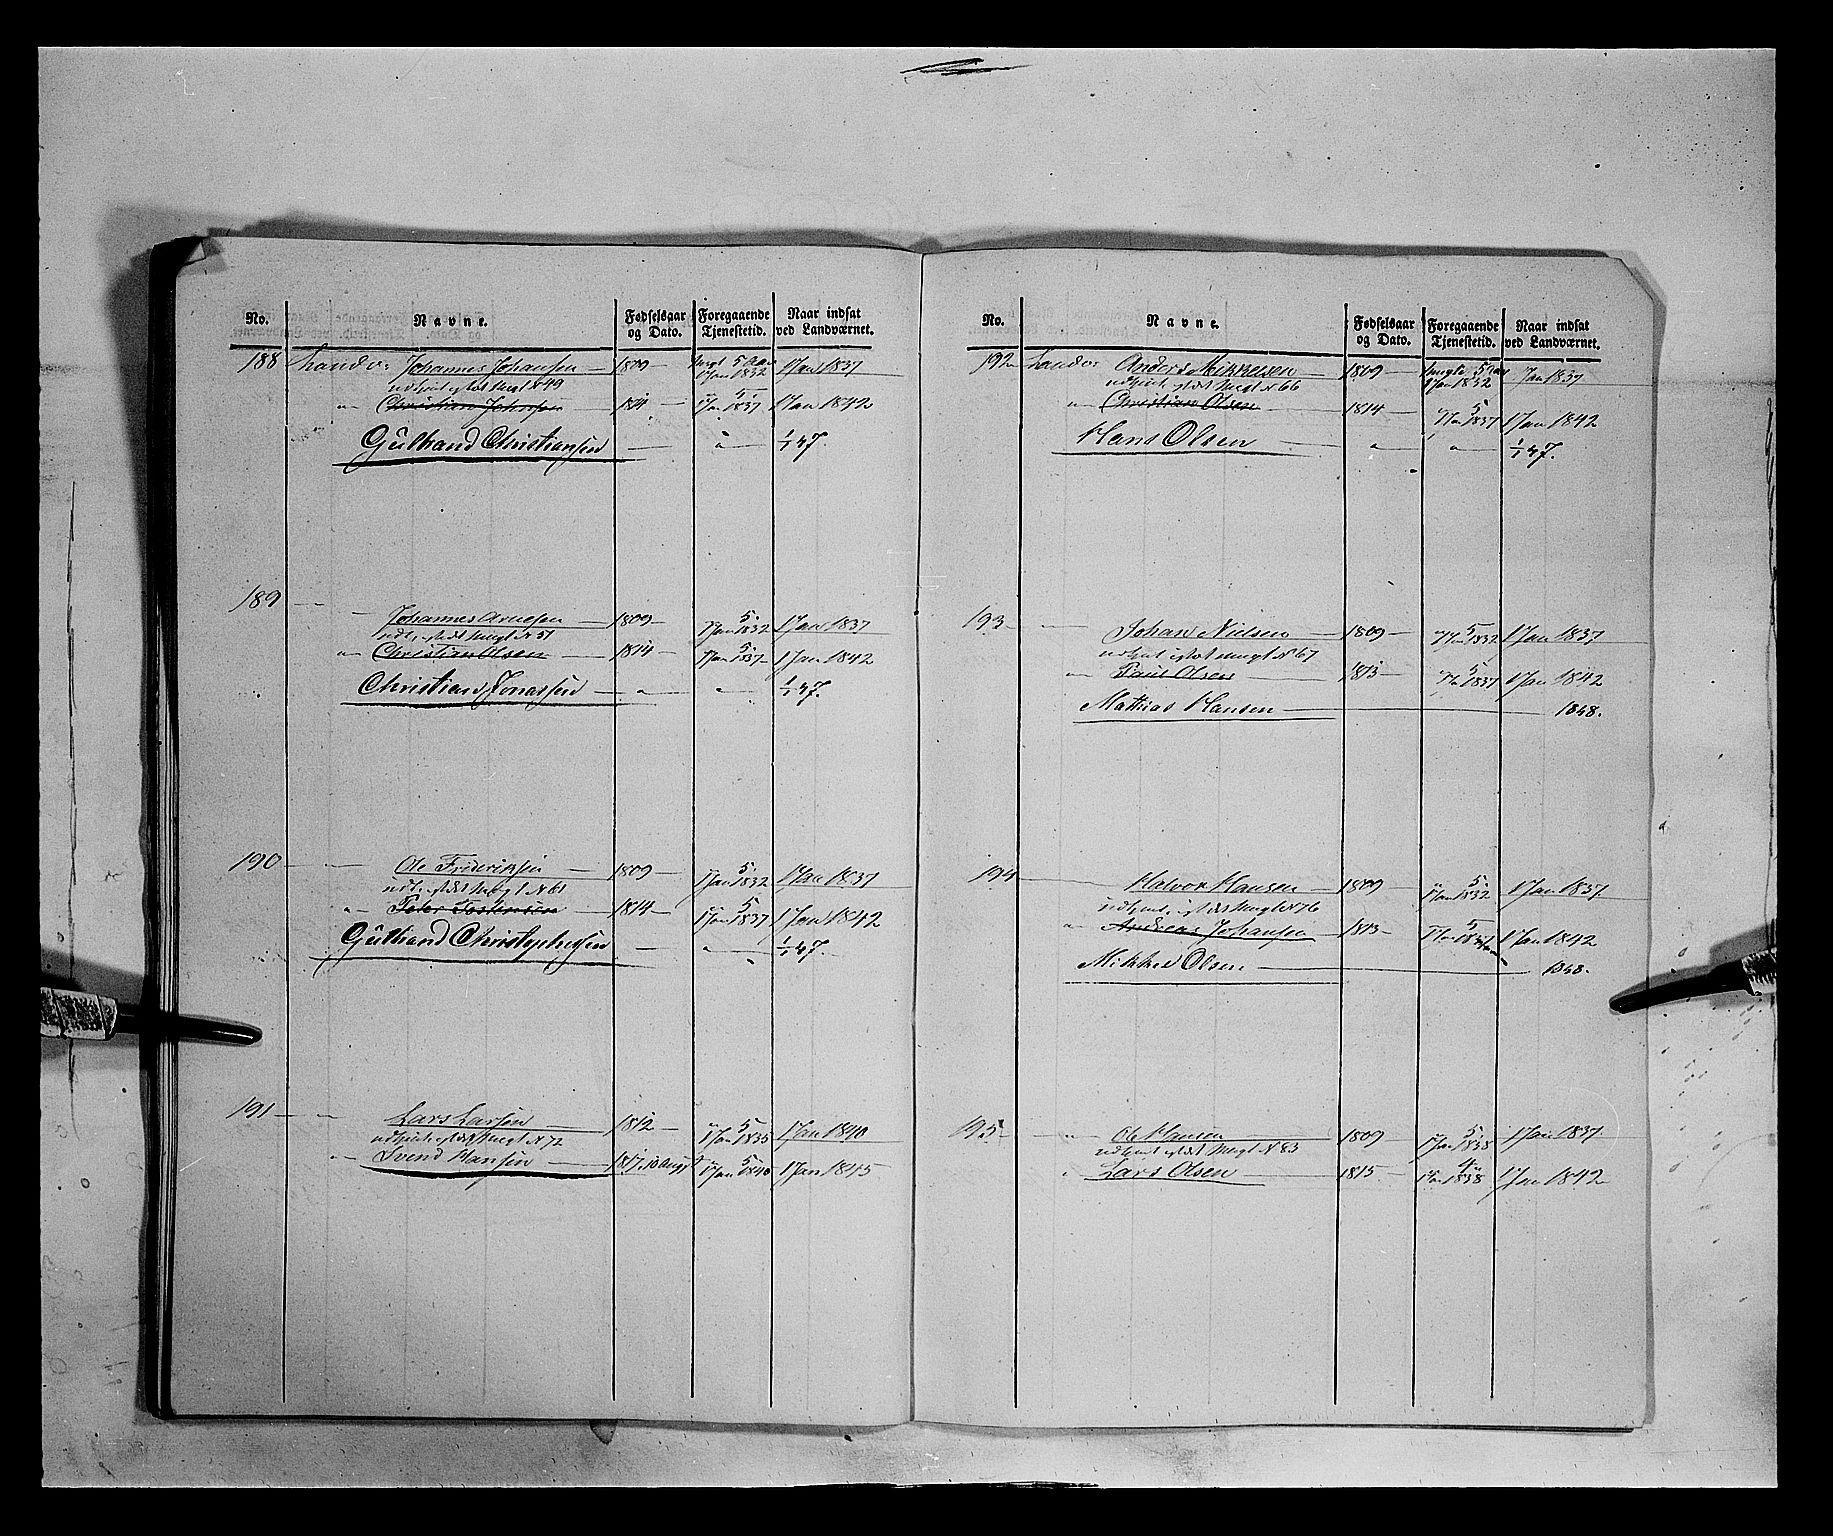 No. Navne. Fødselsaar og Dato. Foregaaende Tjenestetid. Naar indsat ved Landværnet.
188 Landv: Johannes Johansen — 1809 — 5 Aar 1 Jan 1832 1 Jan 1837
Nº 49
" Christian Johnsen 1814 — 5 1 Jan 1837 1 Jan 1842
Gulbrand Christiansen — " 1/1 47.
189 — — Johannes Arnesen — 1809 — 5 1 Jan 1832 1 Jan 1837
Nº 51
" Christian Olsen 1814 — 5 1 Jan 1837 — 1 Jan 1842
Christian Jonassen — " — " — 1/1 47.
190 — — Ole Frideriksen — 1809 — 5 1 Jan 1832 1 Jan 1837
Nº 61
" Peter Tostensen 1814 — 5 1 Jan 1837 1 Jan 1842
Gulbrand Christophersen — " — 1/1 47.
191 — — Lars Larsen 1812 — 5 1 Jan 1835 1 Jan 1840
Nº 72
" Svend Hansen — 1817, 10 Augst 5 1 Jan 1840 1 Jan 1845
No. Navne. Fødselsaar og Dato. Foregaaende Tjenestetid. Naar indsat ved Landværnet.
192 Landv: Anders Mikkelsen 1809 — 5 Aar 1 Jan 1832 1 Jan 1837
Nº 66
" Christian Olsen 1814 — 5 1 Jan 1837 1 Jan 1842
Hans Olsen — " — " — 1/1 47.
193 — Johan Nielsen — 1809 — 5 1 Jan 1832 1 Jan 1837
Nº 67
" Paul Olsen 1813 — 5 1 Jan 1837 1 Jan 1842
Mathias Hansen — 1848.
194 — Halvor Hansen — 1809 — 5 1 Jan 1832 1 Jan 1837
Nº 76
" Andreas Johansen 1813 — 5 1 Jan 1837 1 Jan 1842
Mikkel Olsen — 1848.
195 — " Ole Hansen 1809 — 5 1 Jan 1838 1 Jan 1837
Nº 83
" Lars Olsen — 1815 — 4 1 Jan 1838 1 Jan 1842